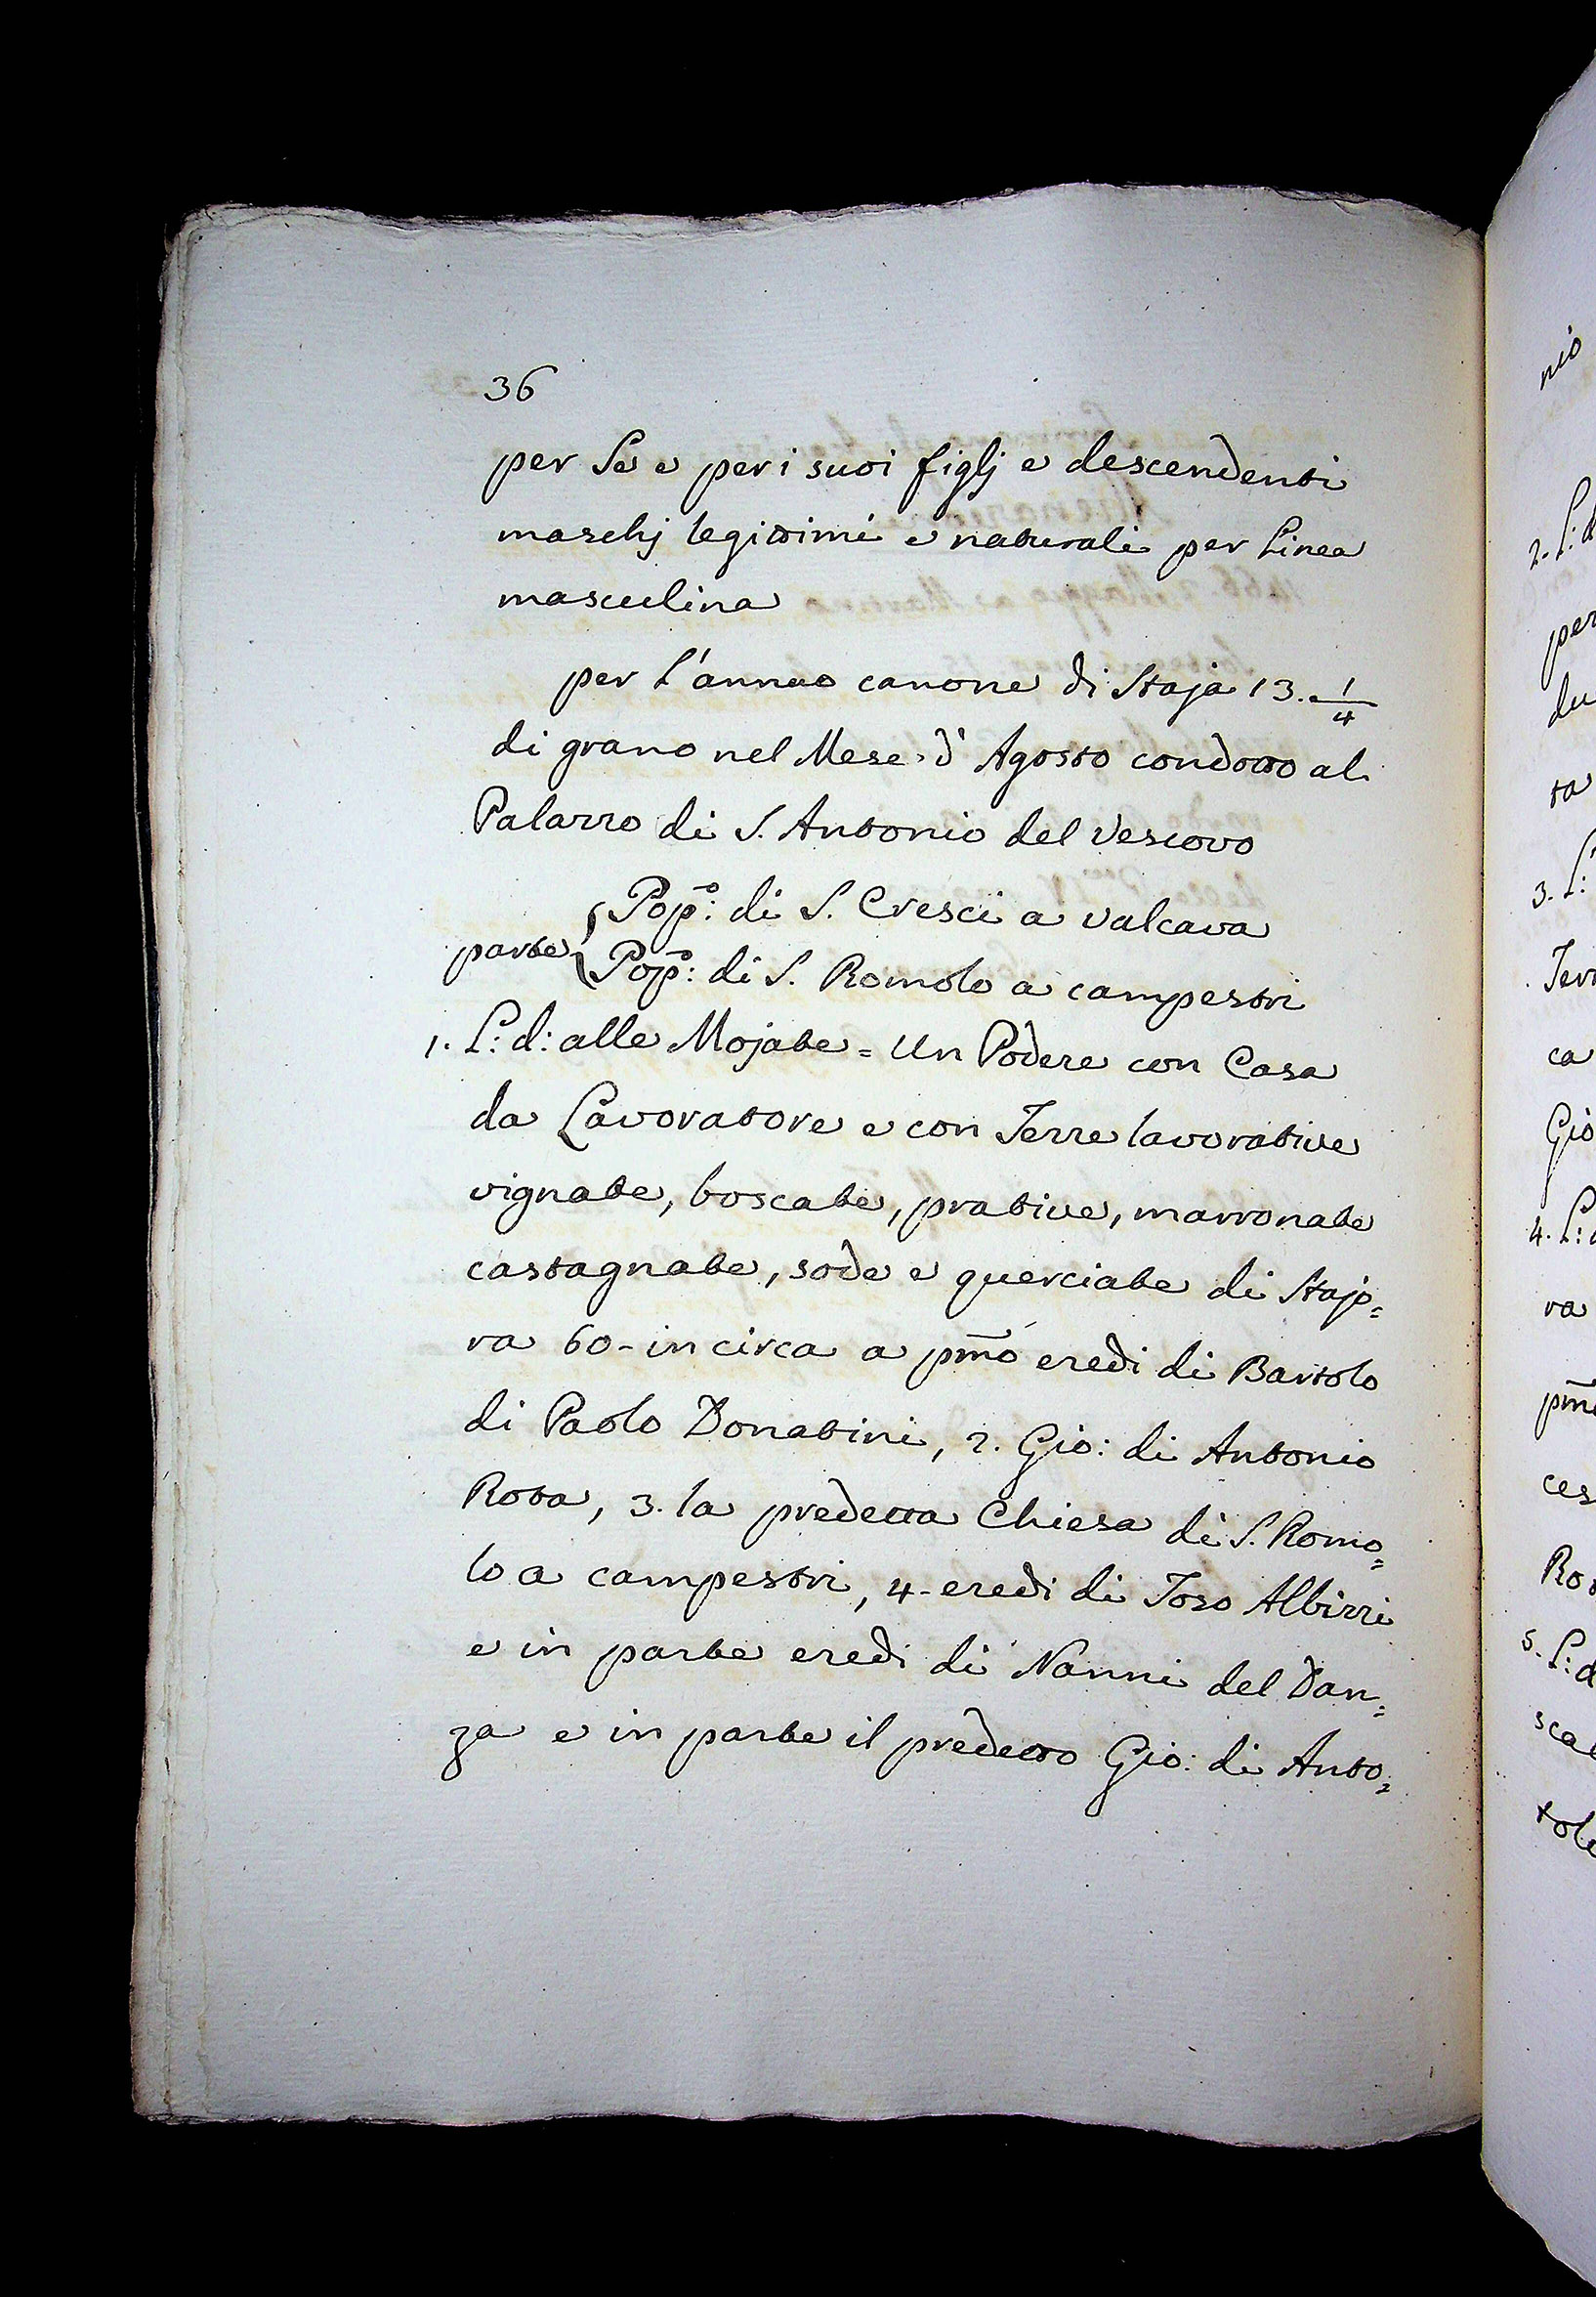 36
per Se e per i suoi figlj e descendenti
maschj legittimi e naturali per Linea
masculina
per l'annuo canone di Staja 13. 1/4
di grano nel Mese d'Agosto condotto al
Palazzo di S. Antonio del Vescovo
parte { Pop:º di S. Cresci a Valcava
Pop:º di S. Romolo a campestri
1. L: d: alle Mojate = Un Podere con Casa
da Lavoratore e con Terre lavorative
vignate, boscate, prative, marronate
castagnate, sode e querciate di Stajo=
ra 60 - in circa a pm̃o eredi di Bartolo
di Paolo Donatini, 2. Gio: di Antonio
Rota, 3. la predetta Chiesa di S. Romo=
lo a campestri, 4 - eredi di Toso Albizzi
e in parte eredi di Nanni del Dan=
za e in parte il predetto Gio: di Anto=
nio
2. L: d
per
du
ta
3. L:
Terr
ca
Gio
4. L: d
ra
pm̃
ces
Ro
5. L: d
sca
tol